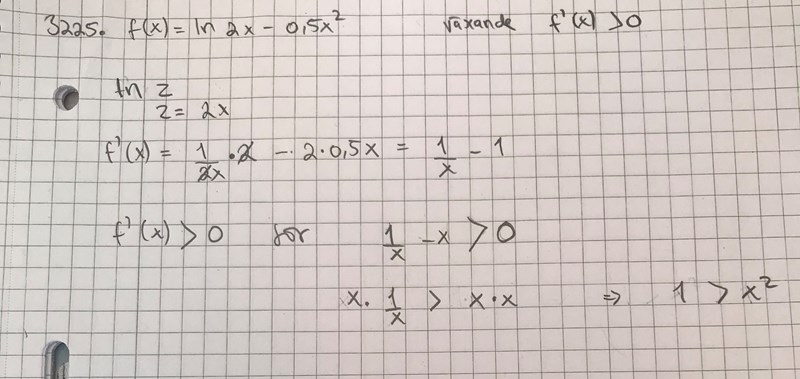 3225. f(x) = ln 2x - 0,5x² växande f'(x) > 0
ln z
z = 2x
f'(x) = 1/2x · 2 - 2·0,5x = 1/x - 1
f'(x) > 0 för 1/x - x > 0
x · 1/x > x·x ⇒ 1 > x²